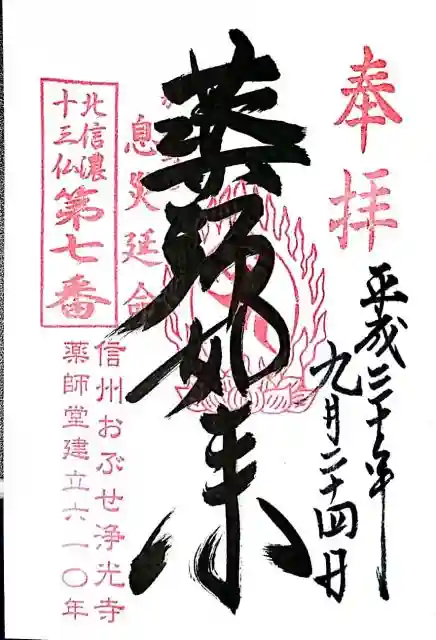 奉拝
平成三十年
九月二十四日
薬師如来
息災延命
北信濃
十三仏
第七番
信州おぶせ浄光寺
薬師堂建立六一〇年